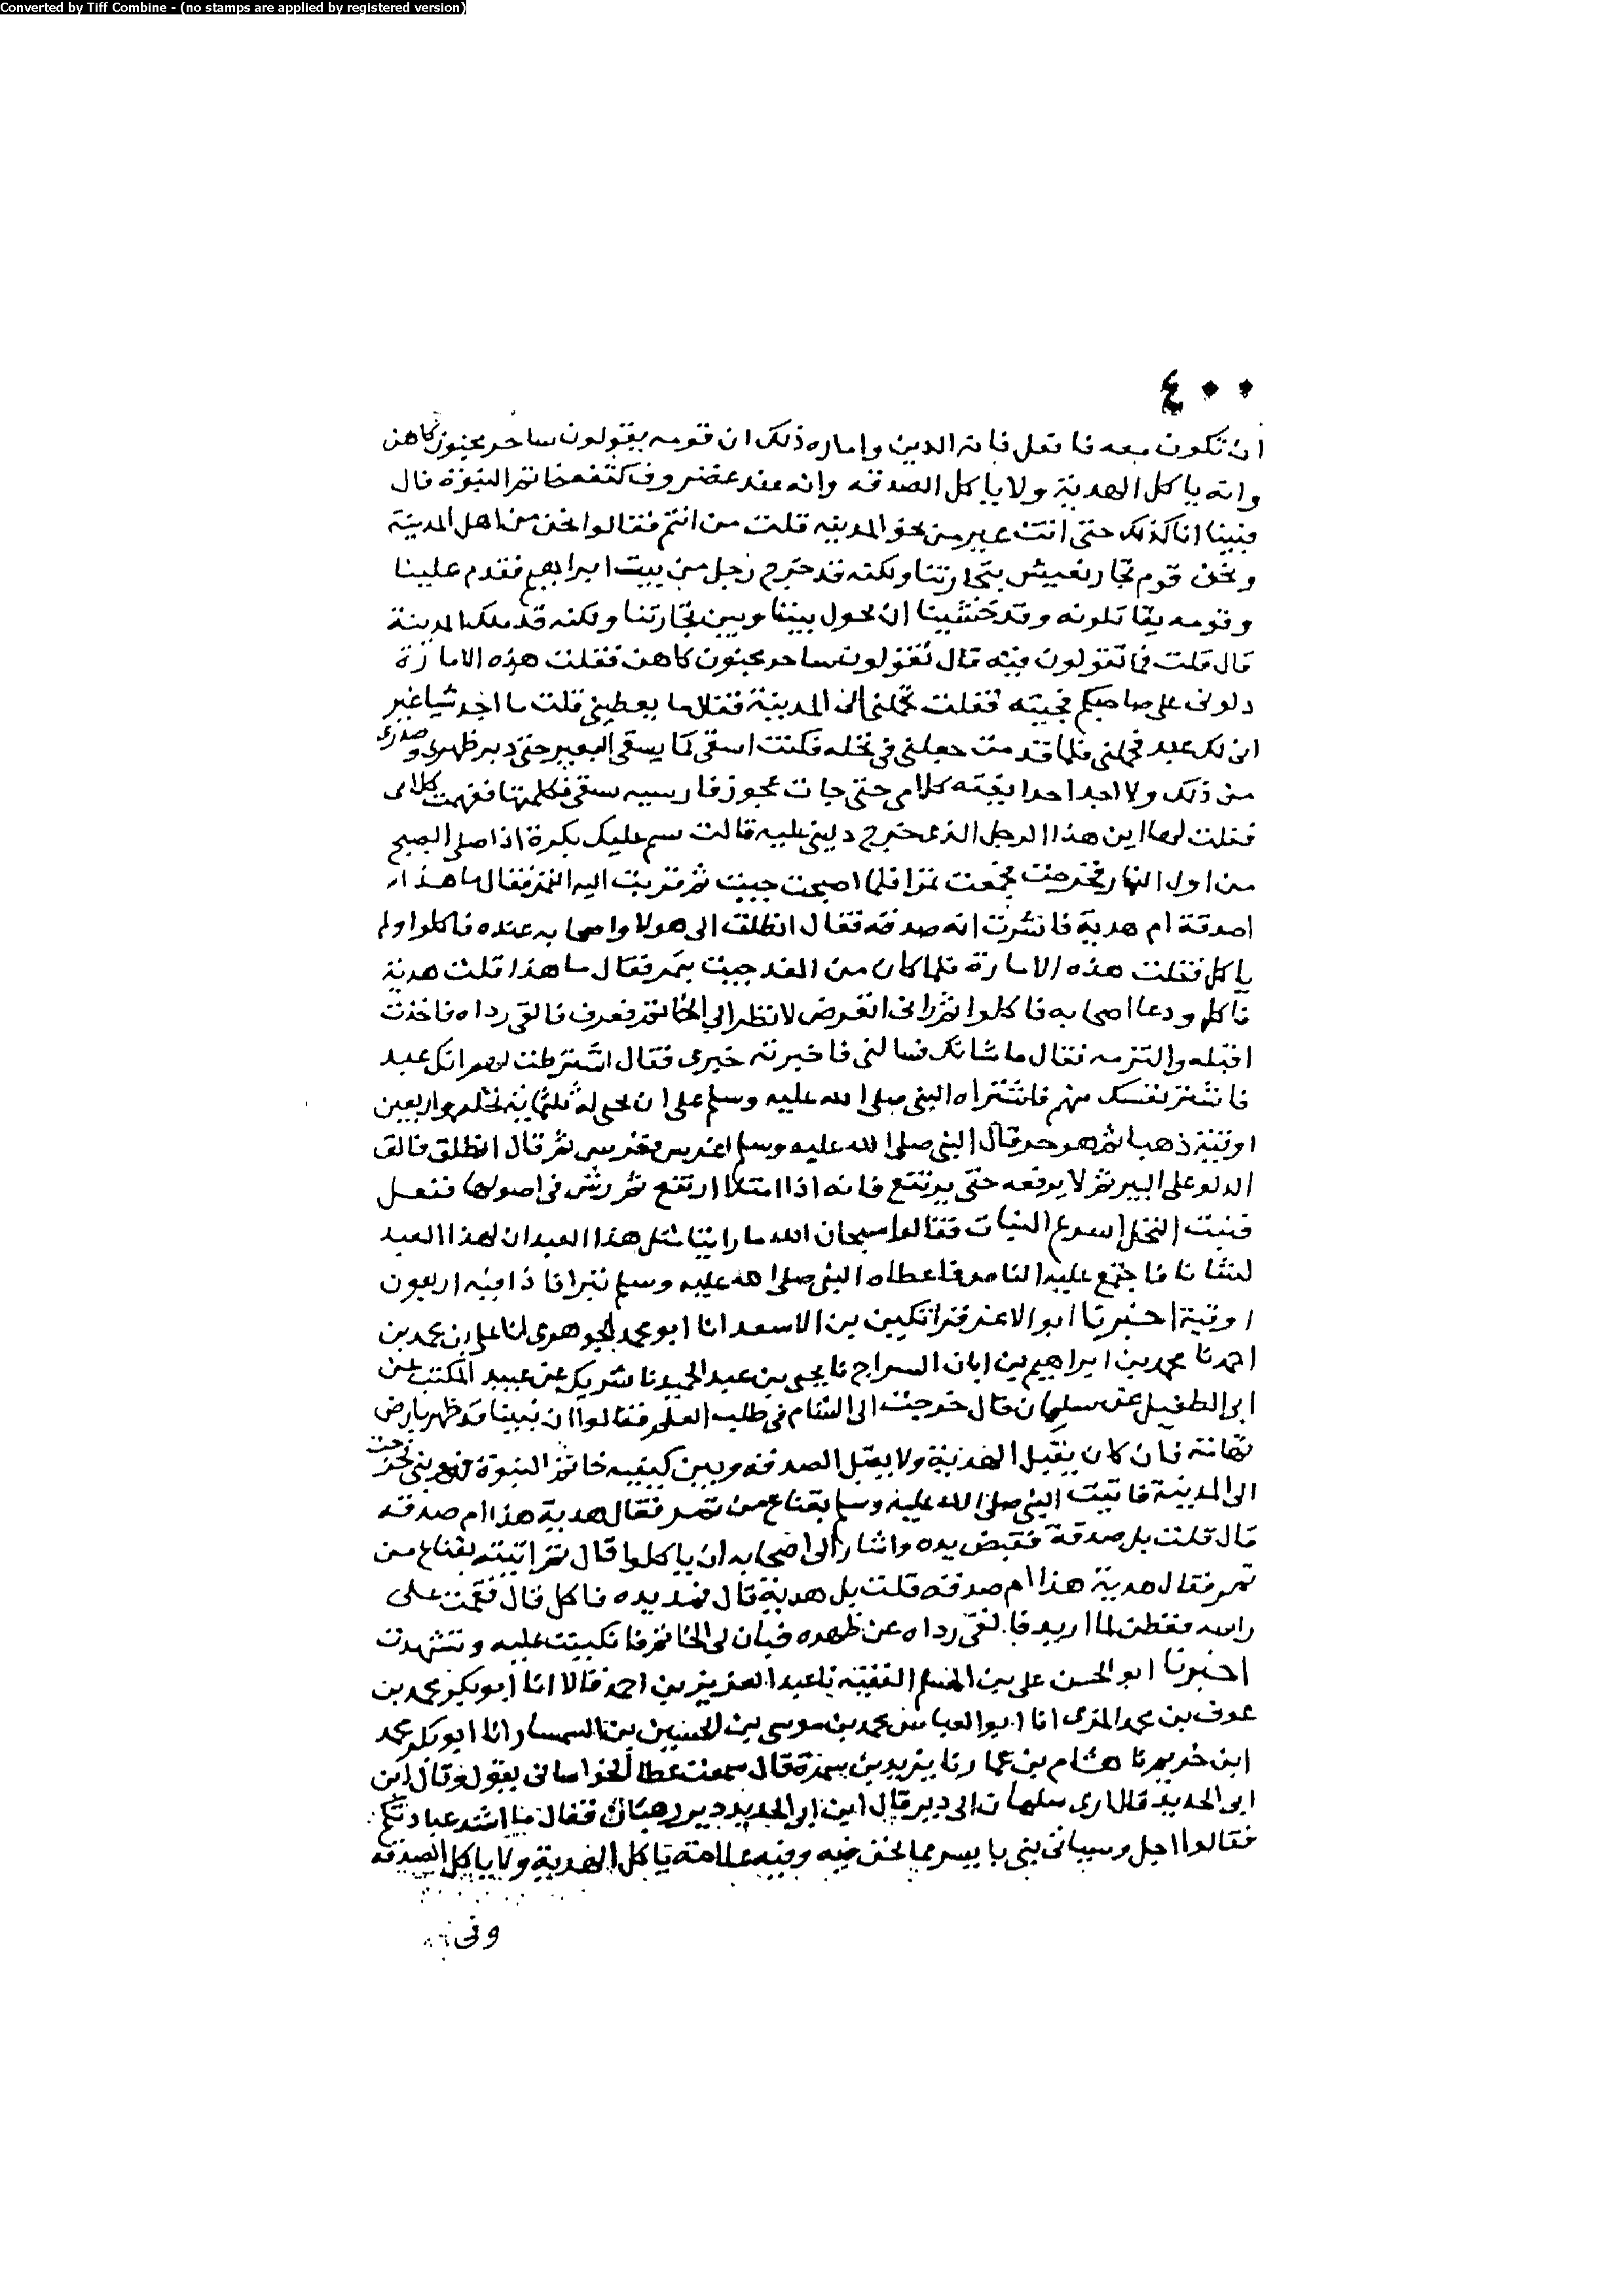 Converted by Tiff Combine - (no stamps are applied by registered version)
٤٠٠
ان تكون معه فافعل فانه الدين واماره ذلك ان قومه يقولون ساحر مجنون كاهن
وانه ياكل الهدية ولا ياكل الصدقه وانه عند غضروف كتفه خاتم النبوة قال
فبينا انا كذلك حتى اتت عير من نحو المدينه قلت من انتم فقالوا نحن من اهل المدينة
ونحن قوم تجار نعيش بتجارتنا ولكنه قد خرج رجل من بيت ابراهيم فقدم علينا
وقومه يقاتلونه وقد خشينا ان يحول بيننا وبين تجارتنا ولكنه قد ملك المدينة
قال قلت فما تقولون فيه قال نقولون ساحر مجنون كاهن فقلت هذه الامارة
دلونى على صاحبكم فجيته فقلت تحملنى الى المدينة فقال ما يعطينى قلت ما اجد شيا غير
انى لك عبد فحملنى فلما قدمت جعلنى فى نخله فكنت اسقى كما يسقى البعير حتى دبر ظهرى وصدرى
من ذلك ولا اجد احدا يفقه كلامى حتى جات عجوز فارسيه سقى فكلمتها ففهمت كلامى
فقلت لها اين هذا الرجل الذى خرج دلينى عليه قالت سيمر عليك بكرة اذا صلى الصبح
من اول النهار فخرجت فجمعت تمرا فلما اصبحت جيت ثم قربت اليه التمر فقال ما هذا
اصدقة ام هدية فاشرت انه صدقه فقال انطلق الى هولا واصحابه عنده فاكلوا ولم
ياكل فقلت هذه الامارة فلما كان من الغد جيت بتمر فقال ما هذا قلت هدية
فاكل ودعا اصحابه فاكلوا ثم رانى اتعرض لانظر الى الخاتم فعرف فالقى رداه فاخذت
اقبله والتزمه فقال ما شانك فسالنى فاخبرته خبرى فقال اشترطت لهم انك عبد
فاشتر نفسك منهم فاشتراه النبى صلى الله عليه وسلم على ان يحى له ثلثماية نخله واربعين
اوقية ذهبا ثم هو حر قال النبى صلى الله عليه وسلم اغرس فغرس ثم قال انطلق فالق
الدلو على البير ثم لا يرفعه حتى يرتفع فانه اذا امتلا ارتفع ثم رش فى اصولها ففعل
فنبت النخل اسرع النبات فقالوا سبحان الله ما راينا مثل هذا العبد ان لهذا العبد
لشانا فاجتمع عليه الناس فاعطاه النبى صلى الله عليه وسلم تبرا فاذا فيه اربعون
اوقية اخبرنا ابو الاعز قراتكين بن الاسعد انا ابو محمد الجوهرى انا على بن محمد بن
احمد نا محمد بن ابراهيم بن ابان السراج نا يحيى بن عبد الحميد نا شريك عن عبيد المكتب عن
ابى الطفيل عن سلمان قال خرجت الى الشام فى طلب العلم فقالوا ان نبينا قد ظهر بارض
تهامة فان كان يقبل الهدية ولا يقبل الصدقه وبين كتفيه خاتم النبوة فخرجت
الى المدينة فاتيت النبى صلى الله عليه وسلم بقناع من تمر فقال هدية هذا ام صدقه
قال قلت بل صدقة فقبض يده واشار الى اصحابه ان ياكلوا قال ثم اتيته بقناع من
تمر فقال هدية هذا ام صدقه قلت بل هدية قال فمد يده فاكل قال فقمت على
راسه ففطن لما اريد فالقى رداه عن ظهره فبان لى الخاتم فانكببت عليه وتشهدت
اخبرنا ابو الحسن على بن المسلم الفقيه نا عبد العزيز بن احمد قالا انا ابو بكر محمد بن
عوف بن محمد المزى انا ابو العباس محمد بن موسى بن الحسين بن السمسار انا ابو بكر محمد
ابن خريم نا هشام بن عمار نا يزيد بن سمرة قال سمعت عطا الخراسانى يقول وقال ابن
ابى الحديد قال ارى سلمان الى دير قال ابن ابى الحديد دير رهبان فقال ما اشد عبادتكم
فقالوا اجل وسياتى نبى ياييسر مما نحن فيه وفيه علامة ياكل الهدية ولا ياكل الصدقه
وفى